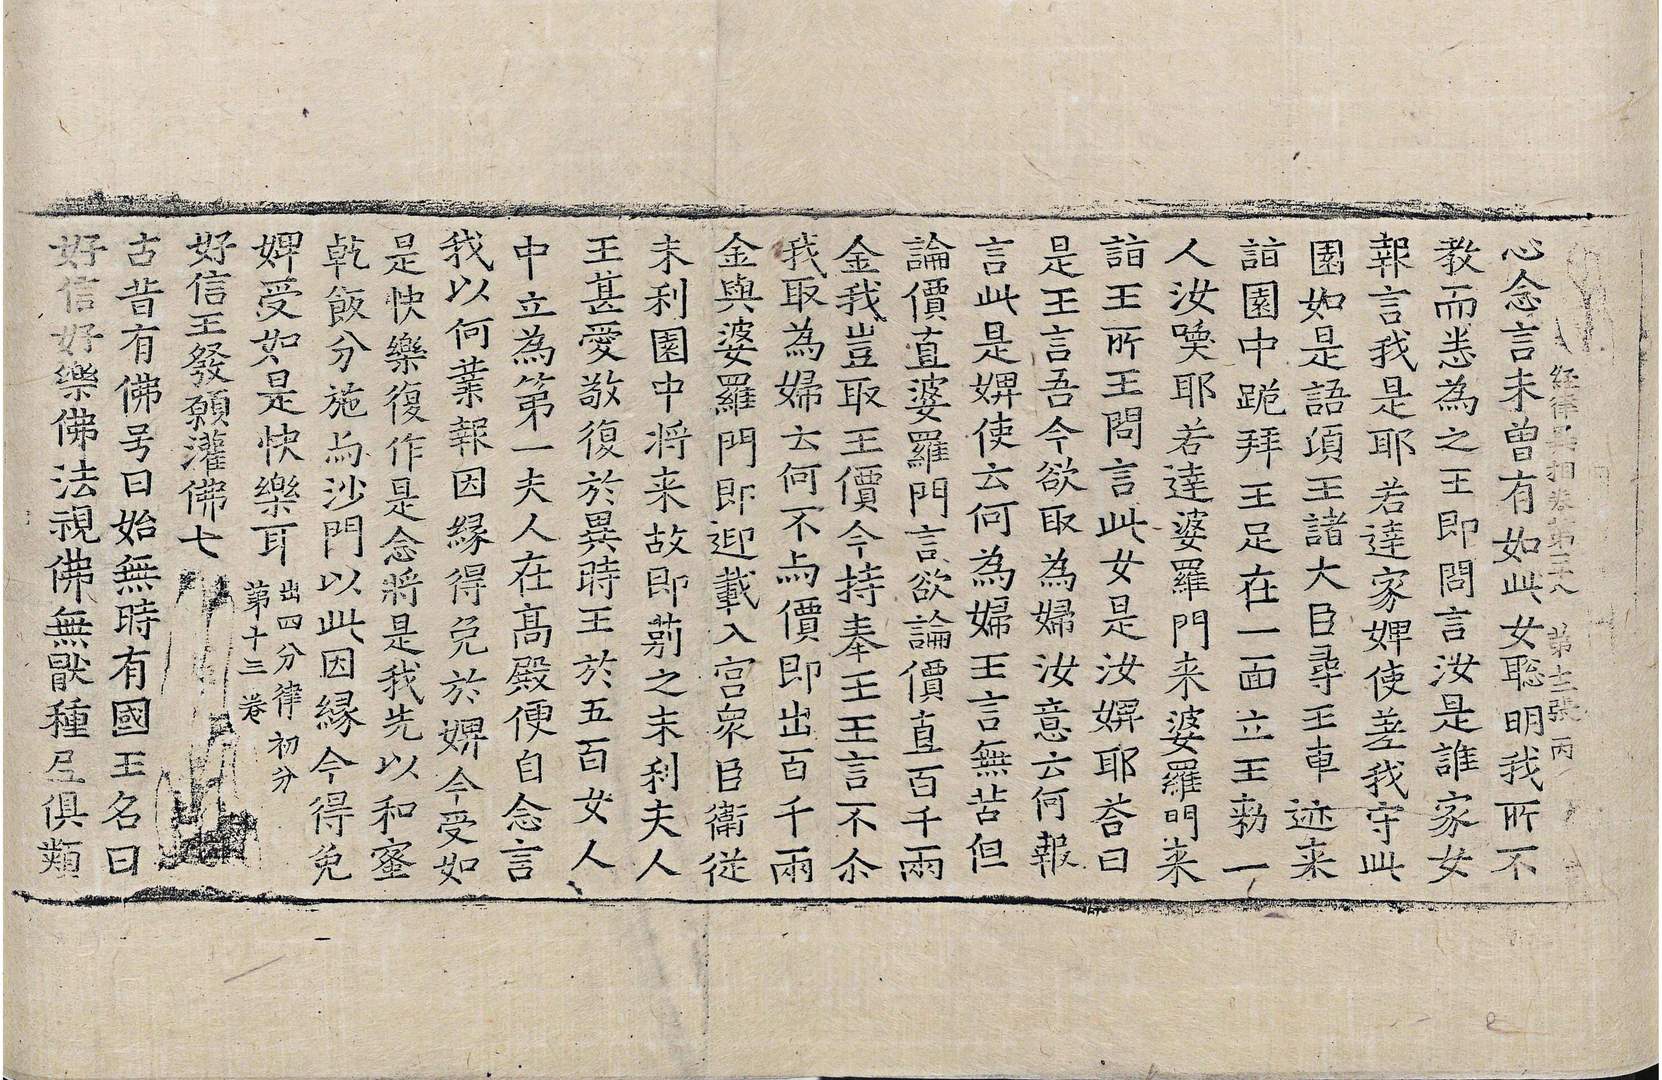 經律異相卷第二十八 第十二張 丙
心念言未曾有如此女聡明我所不
教而悉為之王即問言汝是誰家女
報言我是耶若達家婢使差我守此
園如是語頃王諸大臣尋王車迹来
詣園中跪拜王足在一面立王勑一
人汝喚耶若達婆羅門来婆羅門来
詣王所王問言此女是汝婢耶荅曰
是王言吾今欲取為婦汝意云何報
言此是婢使云何為婦王言無苦但
論價直婆羅門言欲論價直百千兩
金我豈取王價今持奉王王言不尒
我取為婦云何不与價即出百千兩
金與婆羅門即迎載入宫衆臣衛從
末利園中将来故即號之末利夫人
王甚愛敬復於異時王於五百女人
中立為第一夫人在髙殿便自念言
我以何業報因緣得免於婢今受如
是快樂復作是念將是我先以和蜜
乾飯分施与沙門以此因緣今得免
婢受如是快樂耳 出四分律初分第十三卷
好信王發願灌佛七
古昔有佛号曰始無時有國王名曰
好信好樂佛法視佛無猒種㞐俱類